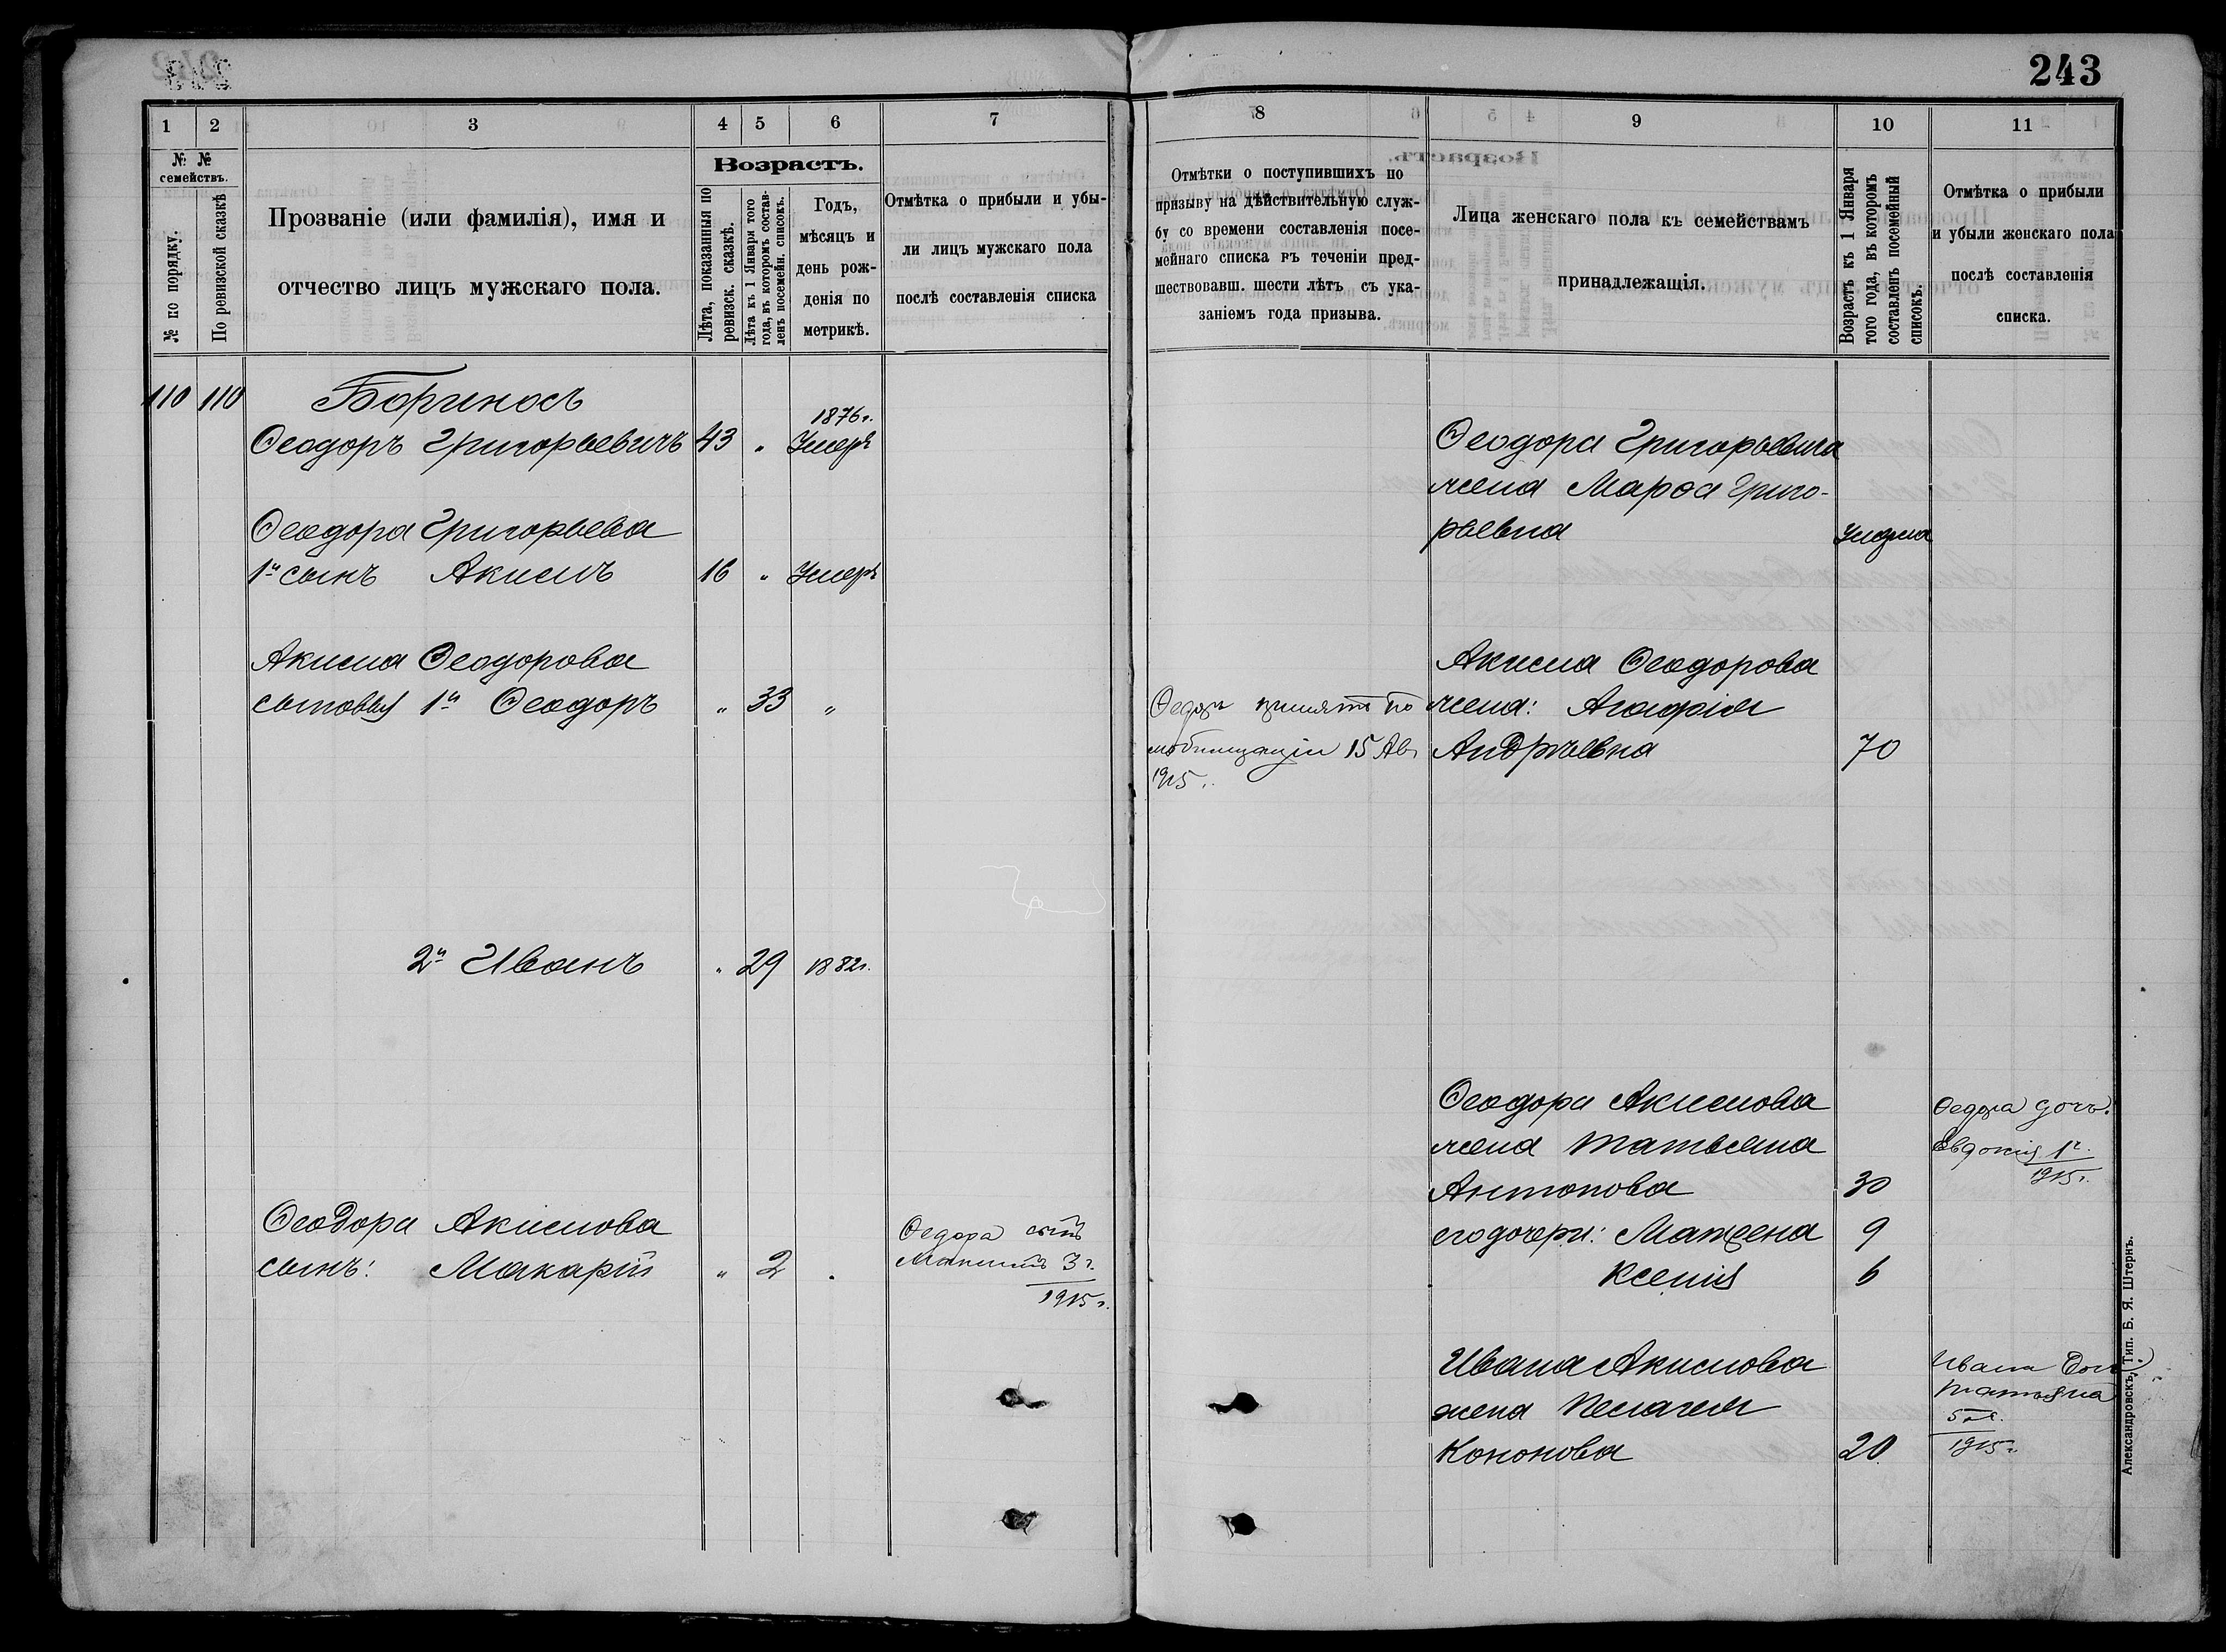 243
1 2 3 4 5 6 7
№ № семействъ.
№ по порядку.
По ревизской сказкѣ
Прозваніе (или фамилія), имя и
отчество лицъ мужскаго пола.
Возрастъ.
Лѣта, показанныя по
ревизск. сказкѣ.
Лѣта къ 1 Января того
года, въ которомъ состав-
ленъ посемейн. списокъ.
Годъ,
мѣсяцъ и
день рож-
денія по
метрикѣ.
Отмѣтка о прибыли и убы-
ли лицъ мужскаго пола
послѣ составленія списка
110 110
1876 г.
Ѳеодоръ Григорьевичъ 43 „ Умеръ
Ѳеодора Григорьева
1й сынъ Акимъ 16 „ Умеръ
Акима Ѳеодорова
сыновья 1й Ѳеодоръ „ 33 „
2й Иванъ „ 29 1882г.
Ѳеодора Акимова
сынъ: Макарій „ 2 „
Ѳедора сынъ
3 г.
1915 г.
8 9 10 11
Отмѣтки о поступившихъ по
призыву на дѣйствительную служ-
бу со времени составленія посе-
мейнаго списка въ теченіи пред-
шествовавш. шести лѣтъ съ ука-
заніемъ года призыва.
Лица женскаго пола къ семействамъ
принадлежащія.
Возрастъ къ 1 Января
того года, въ которомъ
составленъ посемейный
списокъ.
Отмѣтка о прибыли
и убыли женскаго пола
послѣ составленія
списка.
Ѳеодора Григорьевича
жена Марѳа Григо-
рьевна Умерла
Акима Ѳеодорова
жена: Агафія
Андрѣевна 70
Ѳедоръ принятъ по
мобилизаціи 15 Авг
1915 г.
Ѳеодора Акимова
жена Татьяна
Антонова 30
его дочери: Матрена 9
Ксенія 6
Ѳедора дочь
Евдокія 1 г.
1915 г.
Ивана Акимова
жена Пелагея
Кононова 20
Ивана доч
Татьяна
1915 г.
Александровскъ, Тип. Б. Я. Штернъ.